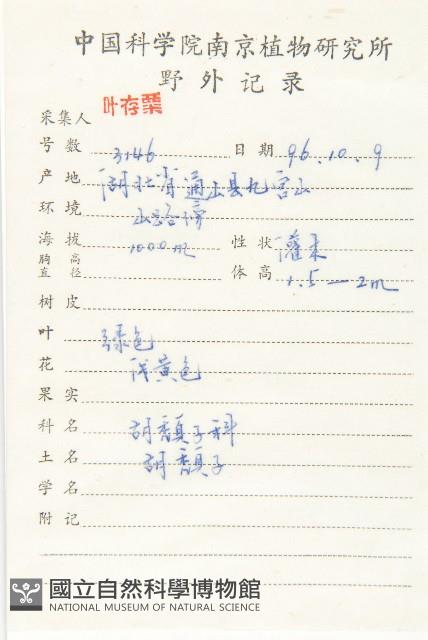 中国科学院南京植物研究所
野外记录
采集人 叶存粟
号数 3146 日期 96.10.9
产地 湖北省通山县九宫山
环境 山路旁
海拔 1000m 性状 灌木
胸高直径 体高 1.5—2m
树皮
叶 绿色
花 浅黄色
果实
科名 胡頹子科
土名 胡頹子
学名
附记
國立自然科學博物館
NATIONAL MUSEUM OF NATURAL SCIENCE